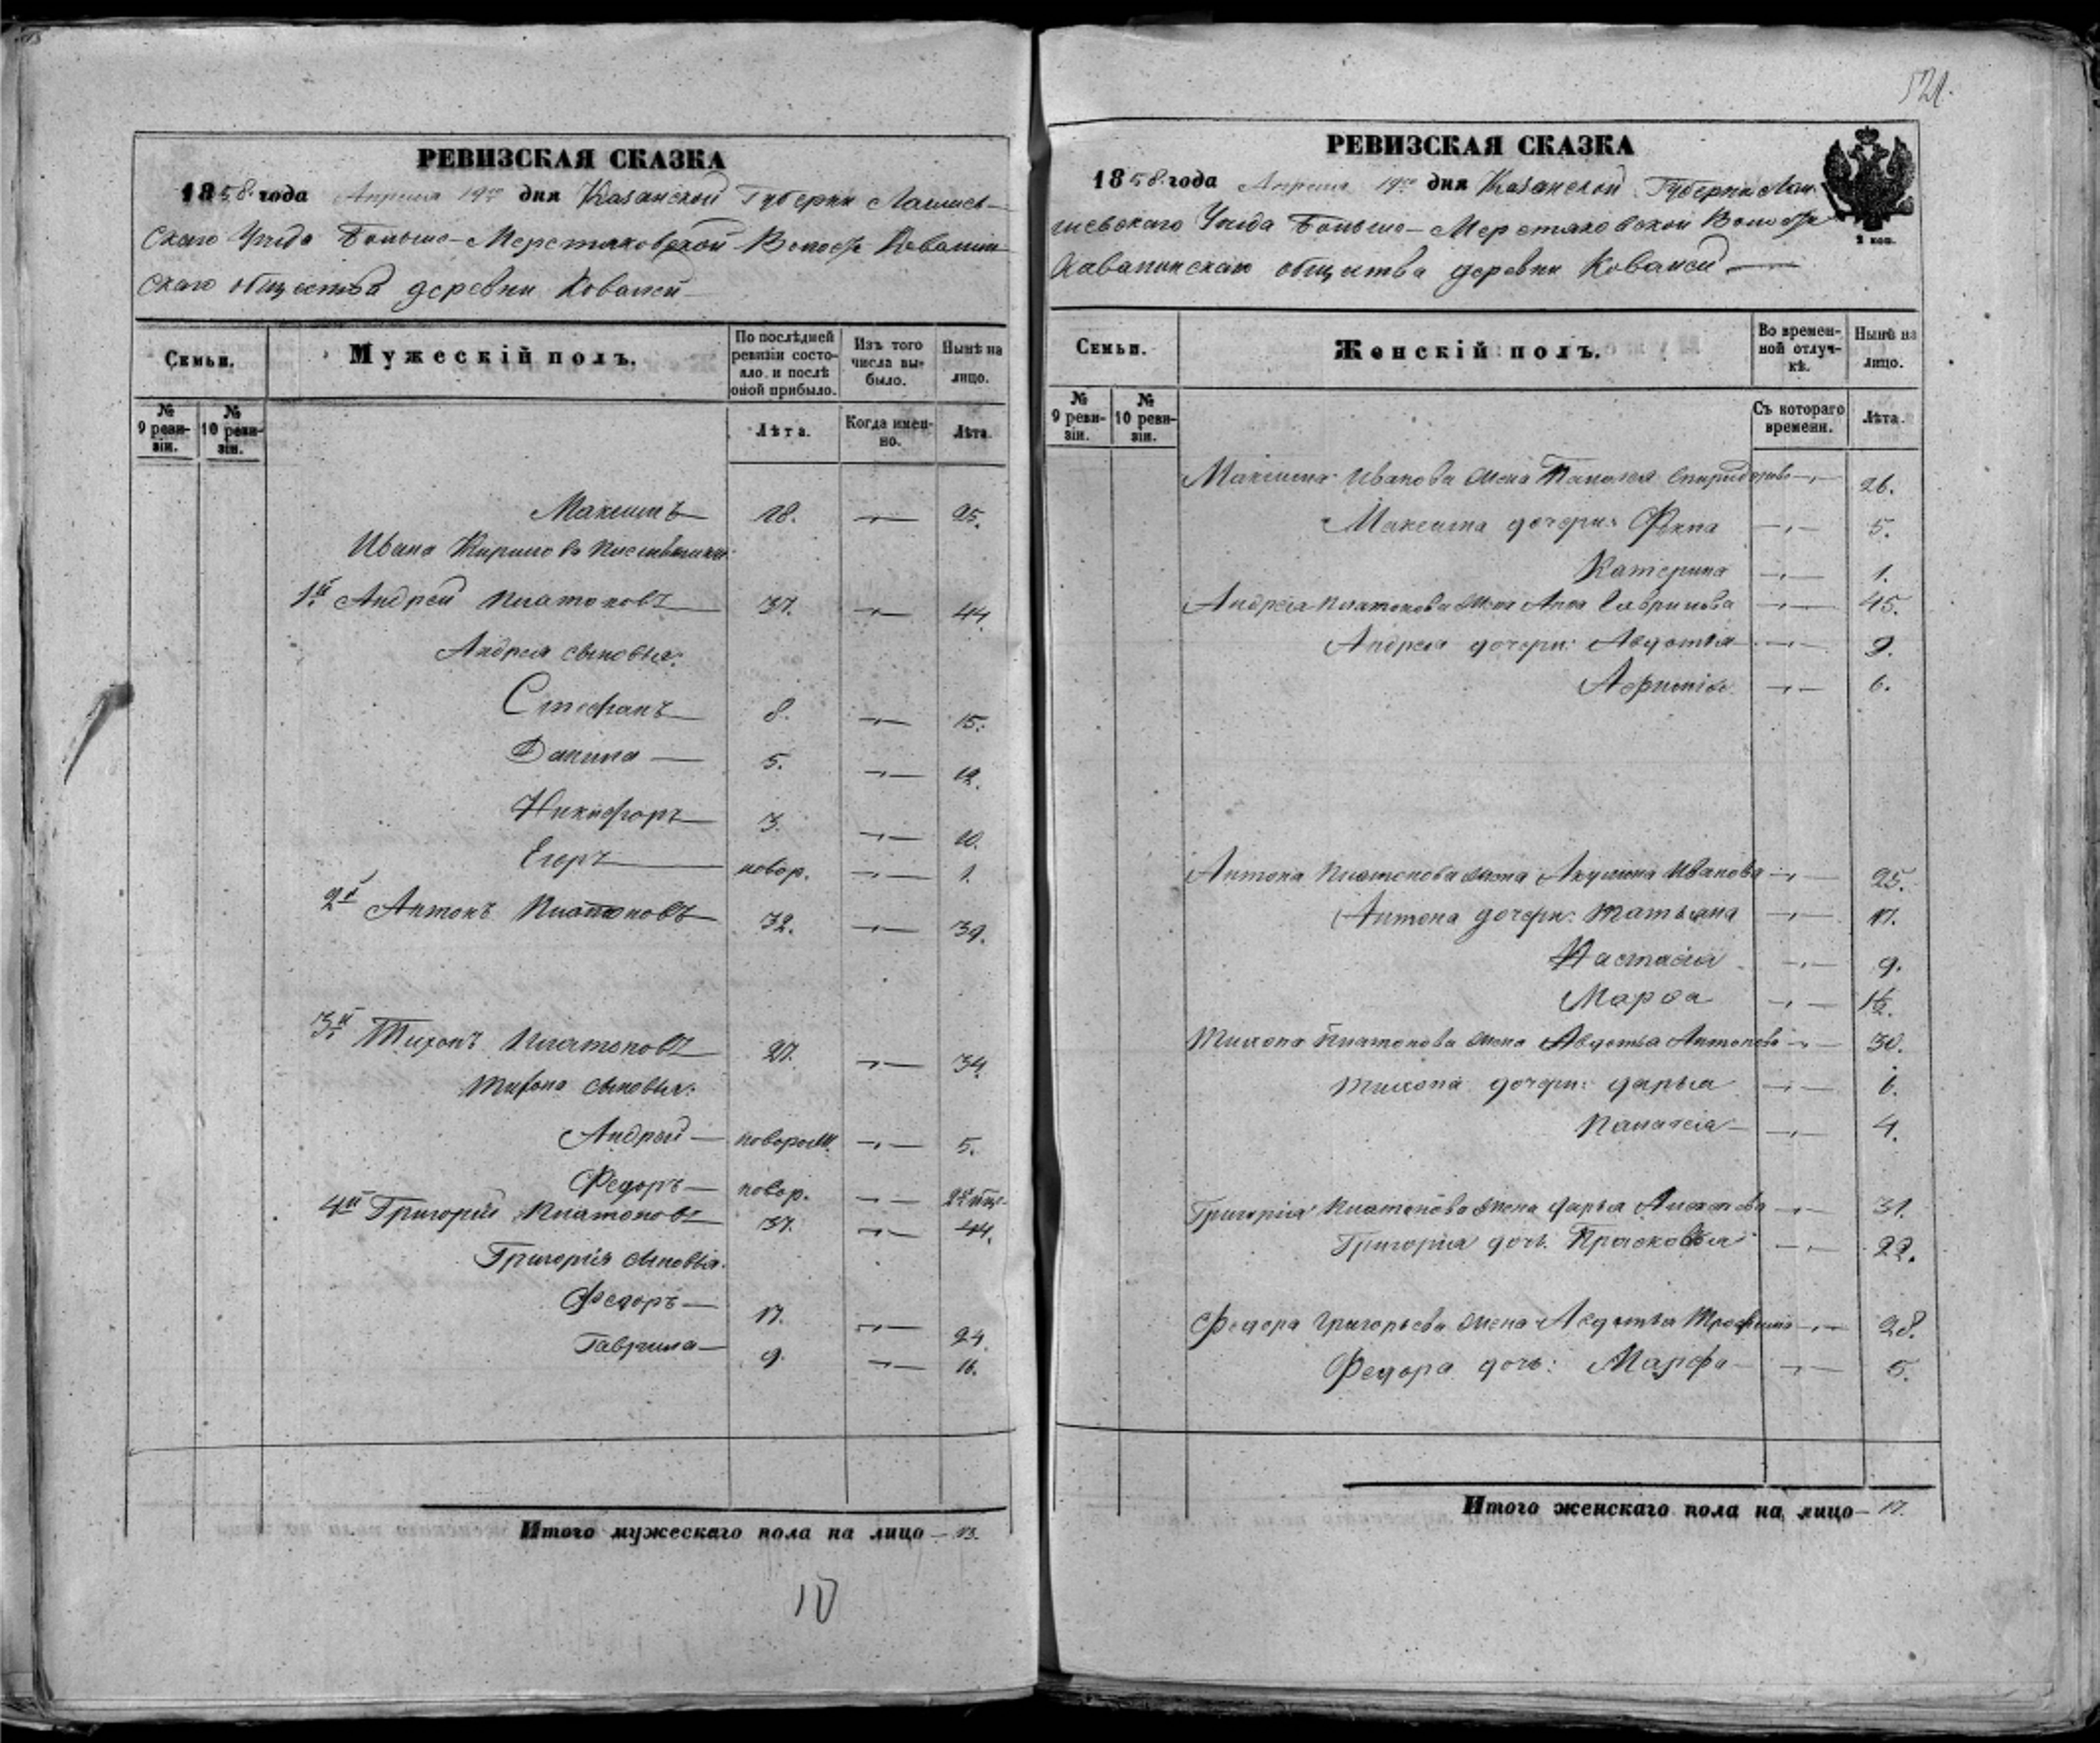 521.
РЕВИЗСКАЯ СКАЗКА
1858 года Апреля 19го дня Казанской Губерніи Лаишев-
скаго Уезда Больше-Меретяковской Волости Ковалин
скаго общества деревни Ковалей
Семьи.
Мужескій полъ.
По послѣдней ревизіи состояло и послѣ оной прибыло.
Изъ того числа выбыло.
Нынѣ на лицо.
№ 9 ревизіи.
№ 10 ревизіи.
Лѣта.
Когда именно.
Лѣта.
Максимъ 18. —"— 25.
Ивана Кирилова
1й Андрей Платоновъ 37. —"— 44.
Андрея сыновья:
Стефанъ 8. —"— 15.
Данила 5. —"— 12.
Никифоръ 3. —"— 10.
Егоръ новор. —"— 1.
2й Антонъ Платоновъ 32. —"— 39.
3й Тихонъ Платоновъ 27. —"— 34.
Тихона сыновья:
Андрей новорож. —"— 5.
Федоръ новор. —"—
4й Григорій Платоновъ 37. —"— 44.
Григорія сыновья:
Федоръ 17. —"— 24.
Гаврила 9. —"— 16.
Итого мужескаго пола на лицо — 13.
10
РЕВИЗСКАЯ СКАЗКА
2 коп.
1858 года Апреля 19го дня Казанской Губерніи Лаи-
шевскаго Уезда Больше-Меретяковской Волости
Ковалинскаго общества деревни Ковалей
Семьи.
Женскій полъ.
Во временной отлучкѣ.
Нынѣ на лицо.
№ 9 ревизіи.
№ 10 ревизіи.
Съ котораго времени.
Лѣта.
Максима Иванова жена Спиридонова —"— 26.
Максима дочери: Фекла —"— 5.
Катерина —"— 1.
Андрея Платонова жена Анна Гаврилова —"— 45.
Андрея дочери: Авдотья —"— 9.
—"— 6.
Антона Платонова жена Акулина Иванова —"— 25.
Антона дочери: Татьяна —"— 17.
Настасія —"— 9.
Марѳа —"— 1½.
Тихона Платонова жена Авдотья Антонова —"— 30.
Тихона дочери: Дарья —"— 6.
Палагея —"— 4.
Григорія Платонова жена Дарья —"— 31.
Григорія дочь Прасковья —"— 22.
Федора Григорьева жена Авдотья Трофимова —"— 28.
Федора дочь: Марфа —"— 5.
Итого женскаго пола на лицо — 17.